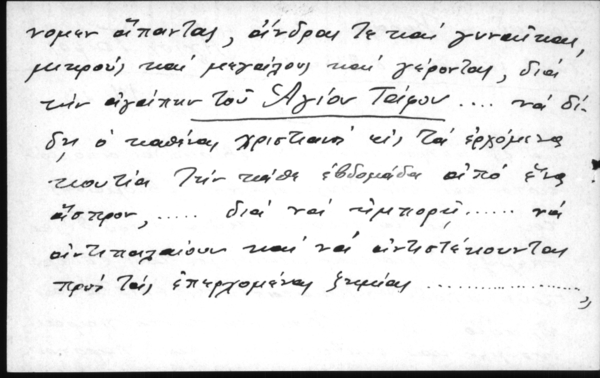 νομεν ἅπαντας, ἄνδρας τε καὶ γυναῖκας,
μικρούς καὶ μεγάλους καὶ γέροντας, διά
τὴν ἀγάπην τοῦ Ἁγίου Τάφου .... νά δί-
δῃ ὁ καθένας χριστιανός εἰς τά ἐρχόμενα
κουτία τήν κάθε ἑβδομάδα ἀπό ἕνα
ἄσπρον, ..... διά νά ἠμπορῇ ...... νά
ἀντιπαλαίουν καί νά ἀντιστέκουνται
πρός τάς ἐπερχομένας ζημίας ....................,,